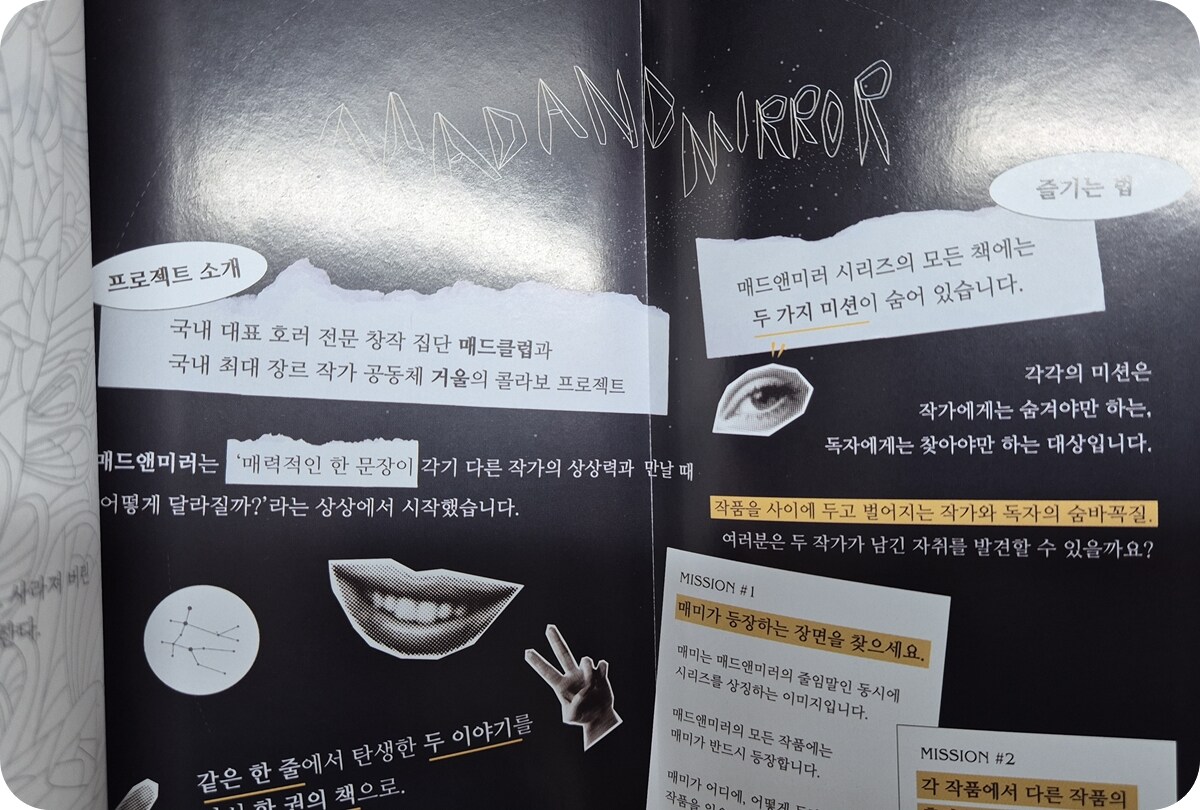 MAD AND MIRROR
프로젝트 소개
국내 대표 호러 전문 창작 집단 매드클럽과
국내 최대 장르 작가 공동체 거울의 콜라보 프로젝트
매드앤미러는 '매력적인 한 문장이 각기 다른 작가의 상상력과 만날 때
어떻게 달라질까?'라는 상상에서 시작했습니다.
같은 한 줄에서 탄생한 두 이야기를
한 권의 책으로.
즐기는 법
매드앤미러 시리즈의 모든 책에는
두 가지 미션이 숨어 있습니다.
각각의 미션은
작가에게는 숨겨야만 하는,
독자에게는 찾아야만 하는 대상입니다.
작품을 사이에 두고 벌어지는 작가와 독자의 숨바꼭질.
여러분은 두 작가가 남긴 자취를 발견할 수 있을까요?
MISSION #1
매미가 등장하는 장면을 찾으세요.
매미는 매드앤미러의 줄임말인 동시에
시리즈를 상징하는 이미지입니다.
매드앤미러의 모든 작품에는
매미가 반드시 등장합니다.
매미가 어디에, 어떻게
MISSION #2
각 작품에서 다른 작품의
사라져 버린